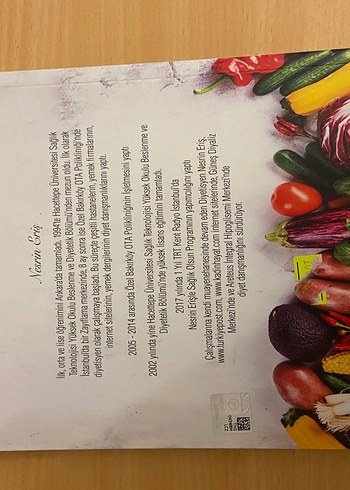 Nesrin Eriş
İlk, orta ve lise öğrenimini Ankara'da tamamladı. 1994'te Hacettepe Üniversitesi Sağlık
Teknolojisi Yüksek Okulu Beslenme ve Diyetetik Bölümü'nden mezun oldu. İlk olarak
İstanbul'da bir Zayıflama merkezinde, 8 ay sonra ise Özel Bakırköy OTA Polikliniği'nde
diyetisyen olarak çalışmaya başladı. Bu süreçte çeşitli hastanelerin, yemek firmalarının,
internet sitelerinin, yemek dergilerinin diyet danışmanlıklarını yaptı.
2005 - 2014 arasında Özel Bakırköy OTA Polikliniğinin İşletmesini yaptı
2002 yılında yine Hacettepe Üniversitesi Sağlık Teknolojisi Yüksek Okulu Beslenme ve
Diyetetik Bölümü'nde yüksek lisans eğitimini tamamladı.
2017 yılında 1 Yıl TRT Kent Radyo İstanbul'da
Nesrin Erişle Sağlık Olsun Programının yapımcılığını yaptı
Çalışmalarına kendi muayenehanesinde devam eden Diyetisyen Nesrin Eriş,
www.turkiyepost.com, www.kadinhayat.com internet sitelerinde, Güneş Diyaliz
Merkezi'nde ve Anteus İntegral Hipoglisemi Merkezi'nde
diyet danışmanlığını sürdürüyor.